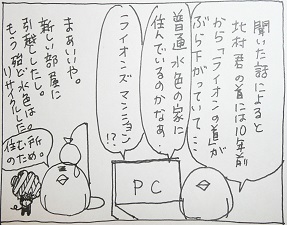 聞いた話によると
北村君の首には10年前
から「ライオンの道」が
ぶら下がっていて…
普通水色の家に
住んでいるのかなぁ。
(ライオンズマンション
!?)
まぁいいや。
新しい部屋に
引越ししたし。
もう殆ど水色は
リサイクルした。
住む所
のため。
PC